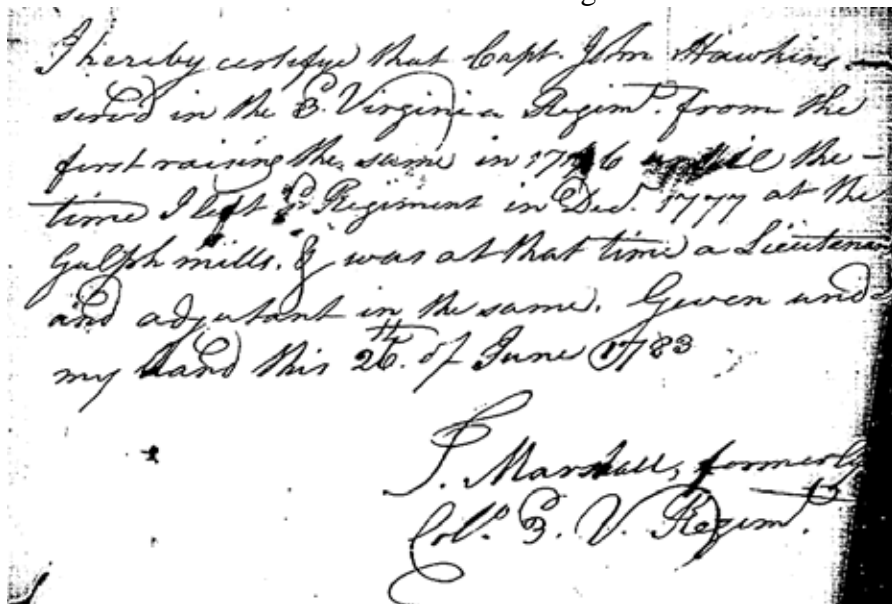 I hereby certifye that Capt. John Hawkins
servd in the 3. Virginia Regimt. from the
first raising the same in 1776 untill the
time I left ye Regiment in Decr. 1777 at the
Gulph mills. & was at that time a Lieutenan
and adjutant in the same. Given und
my hand this 26th. of June 1783
T. Marshall, formerly
Colo. 3. V. Regimt.